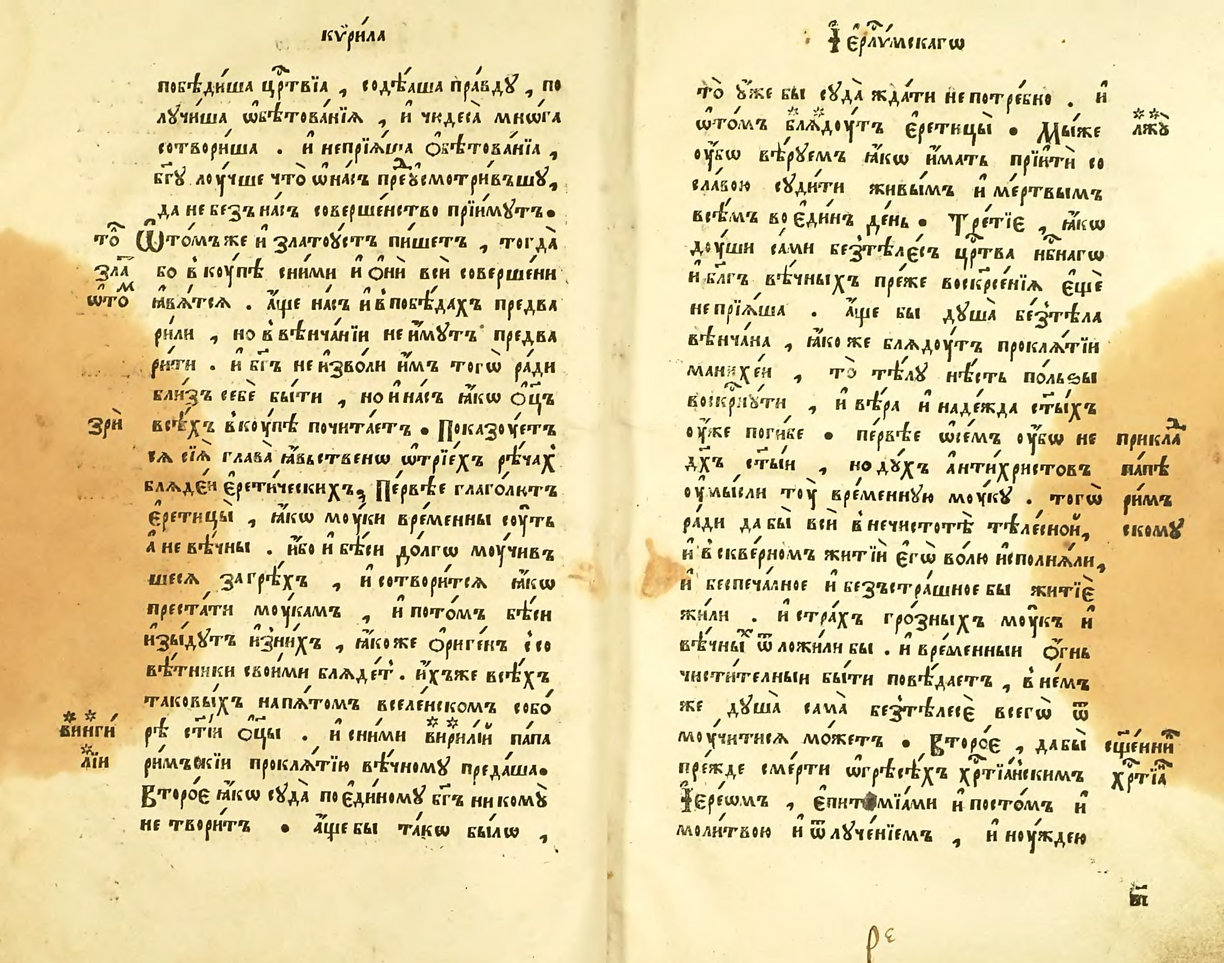 кѷри́ла
побѣди́ша црⷭ҇твїа , содѣ́аша пра́вдꙋ , по
лꙋчи́ша ѡбѣтова́нїѧ , и҆ чюдеса̀ мнѡ́га
сотвори́ша . и҆ непрїѧ́ша ѻ҆бѣтова́нїа ,
бг҃ꙋ лоу́чше что̀ ѡ҆на́съ предꙋсмотри́вшꙋ ,
да не без̾ на́съ соверше́нство прїи́мꙋтъ .
то̀ ѿто́мъже и҆ златоꙋ́стъ пи́шетъ , тогда̀
зла бо в̾ коу́пѣ сни́ми и҆ ѻ҆нѝ всѝ соверше́ни
ѡ҆то ꙗ҆вѧ́тсѧ . а҆́ще на́съ и҆ в̾побѣ́дахъ предва
ри́ли , но в̾ вѣнча́нїи не и҆́мꙋтъ предва
ри́ти . и҆ бг҃ъ не и҆зво́ли и҆̀мъ тогѡ̀ ра́ди
бли́зъ себѐ бы́ти , но и҆ на́съ ꙗ҆́кѡ ѻ҆ц҃ъ
зрѝ всѣ́хъ в̾коу́пѣ почита́етъ . Показоу́етъ
сѧ сїѧ̀ глава̀ ꙗ҆́вьственѡ ѡ҆трїе́хъ рѣ́чахъ
блѧде́й є҆рети́ческихъ , Пе́рвѣе глаго́лютъ
є҆ретицы̀ , ꙗ҆́кѡ моу́ки вре́менны соу́ть
а҆ не вѣ́чны . и҆́бо и҆ бѣ́си до́лгѡ моу́чивъ
шесѧ за грѣ́хъ , и҆ сотвори́тсѧ ꙗ҆́кѡ
преста́ти моу́камъ , и҆ пото́мъ бѣ́си
и҆зы́дꙋтъ и҆зни́хъ , ꙗ҆́коже ѻ҆риге́нъ ссо
вѣ́тники свои́ми блѧде́т . и҆́хъже всѣ́хъ
таковы́хъ напѧ́томъ вселе́нскомъ собо́
рѣ ст҃і́и ѻ҆ц҃ы . и҆ сни́ми вирилі́й па́па
винги́
лїи ри́мъскїи проклѧ́тїю вѣ́чномꙋ преда́ша .
Второ́е ꙗ҆́кѡ сꙋда̀ по є҆ди́номꙋ бг҃ъ никомꙋ̀
не твори́тъ . а҆́ще бы та́кѡ бы́лѡ ,
І҆ерⷭ҇ли́мскагѡ
то̀ ᲂу҆́же бы сꙋда̀ жда́ти не потре́бно . и҆
ѡ҆то́мъ блѧ́доутъ є҆ретицы̀ . Мы́же лжꙋ̀
ᲂу҆́бѡ вѣ́рꙋемъ ꙗ҆́кѡ и҆́мать прїитѝ со
сла́вою сꙋди́ти живы́мъ и҆ ме́ртвымъ
всѣ́мъ во є҆ди́нъ де́нь . Тре́тїе , ꙗ҆́кѡ
доу́ши са́ми без̾тѣле́съ црⷭ҇тва нбⷭ҇нагѡ
и҆ бл҃гъ вѣ́чныхъ пре́же воскресе́нїѧ є҆щѐ
не прїѧ́ша . а҆́ще бы дꙋша̀ без̾тѣ́ла
вѣнча́на , ꙗ҆́коже блѧ́доутъ проклѧ́тїи
манихе́и , то̀ тѣ́лꙋ нѣ́сть по́льѕы
воскрⷭ҇нꙋти , и҆ вѣ́ра и҆ наде́жда ст҃ы́хъ
ᲂу҆́же поги́бе . пе́рвѣе ѡ҆се́мъ ᲂу҆́бѡ не прикла
дх҃ъ ст҃ы́и , но дꙋ́хъ а҆нти́христовъ па́пѣ
ᲂу҆мы́сли тоу́ вре́меннꙋю моу́кꙋ . тогѡ̀ ри́мъ
ра́ди да бы̀ всѝ в̾нечистотѣ̀ тѣле́сной , скомꙋ
и҆ в̾скве́рномъ житїѝ є҆гѡ̀ во́лю и҆сполнѧ́ли ,
и҆ беспеча́лное и҆ безъстра́шное бы житїѐ
жи́ли . и҆ стра́хъ гро́зныхъ моу́къ и҆
вѣ́чныⷯ ѿложи́ли бы . и҆ вре́менныи ѻ҆́гнь
чисти́телныи бы́ти повѣ́даетъ , в̾не́мъ
же дꙋша̀ сама̀ без̾тѣлесѐ всегѡ̀ ѿ
моу́читисѧ мо́жетъ . Второ́е , да бы̀ сщ҃е́нниⷨ
пре́жде сме́рти ѡ҆грѣсѣ́хъ хрⷭ҇тїа́нскимъ хрⷭ҇тїа
І҆ере́ѡмъ , є҆питимїа́ми и҆ посто́мъ и҆
моли́твою и҆ ѿлꙋче́нїемъ , и҆ ноу́ждею
в҃і
рє